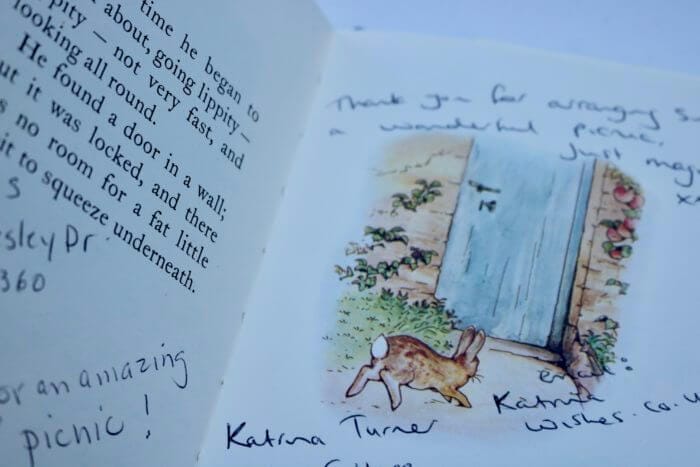 time he began to
about, going lippity—
pity — not very fast, and
looking all round.
He found a door in a wall;
but it was locked, and there
no room for a fat little
to squeeze underneath.
s
esley Dr.
360
or an amazing
picnic!
Thank you for arranging su
a wonderful picnic.
Just mag
email:
Katrina
wishes.co.u
Katrina Turner